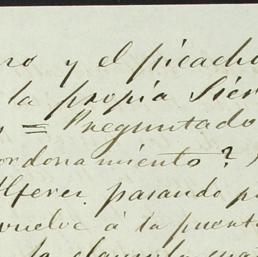 ro y el picacho
la propia Sier
= Preguntado
ordonamiento?)
Alferez pasando p
vuelve á la puent
la clausula cua